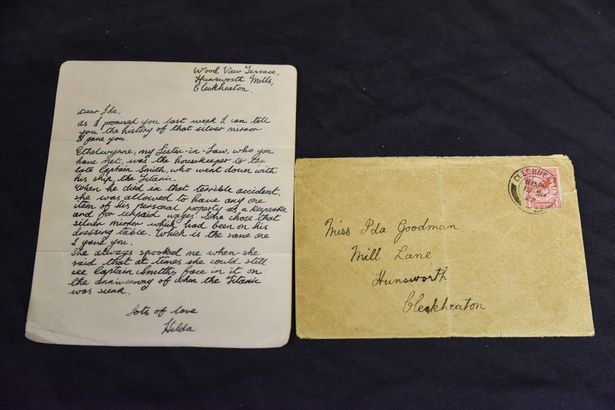 Wood View Terrace,
Hunsworth Mills,
Cleckheaton.
Dear Ida,
as I promised you last week I can tell
you the history of that silver mirror
I gave you.
Ethelwynne, my Sister-in-Law, who you
have met, was the housekeeper to the
late Captain Smith, who went down with
his ship, the Titanic.
When he died in that terrible accident,
she was allowed to have any one
item of his personal property as a keepsake
and for unpaid wages. She chose that
silver mirror which had been on his
dressing table. Which is the same one
I gave you.
She always spooked me when she
said that at times she could still
see Captain Smiths face in it on
the anniversary of when the Titanic
was sunk.
Lots of love
Hilda
CLECKHEA
Miss Ida Goodman
Mill Lane
Hunsworth
Cleckheaton